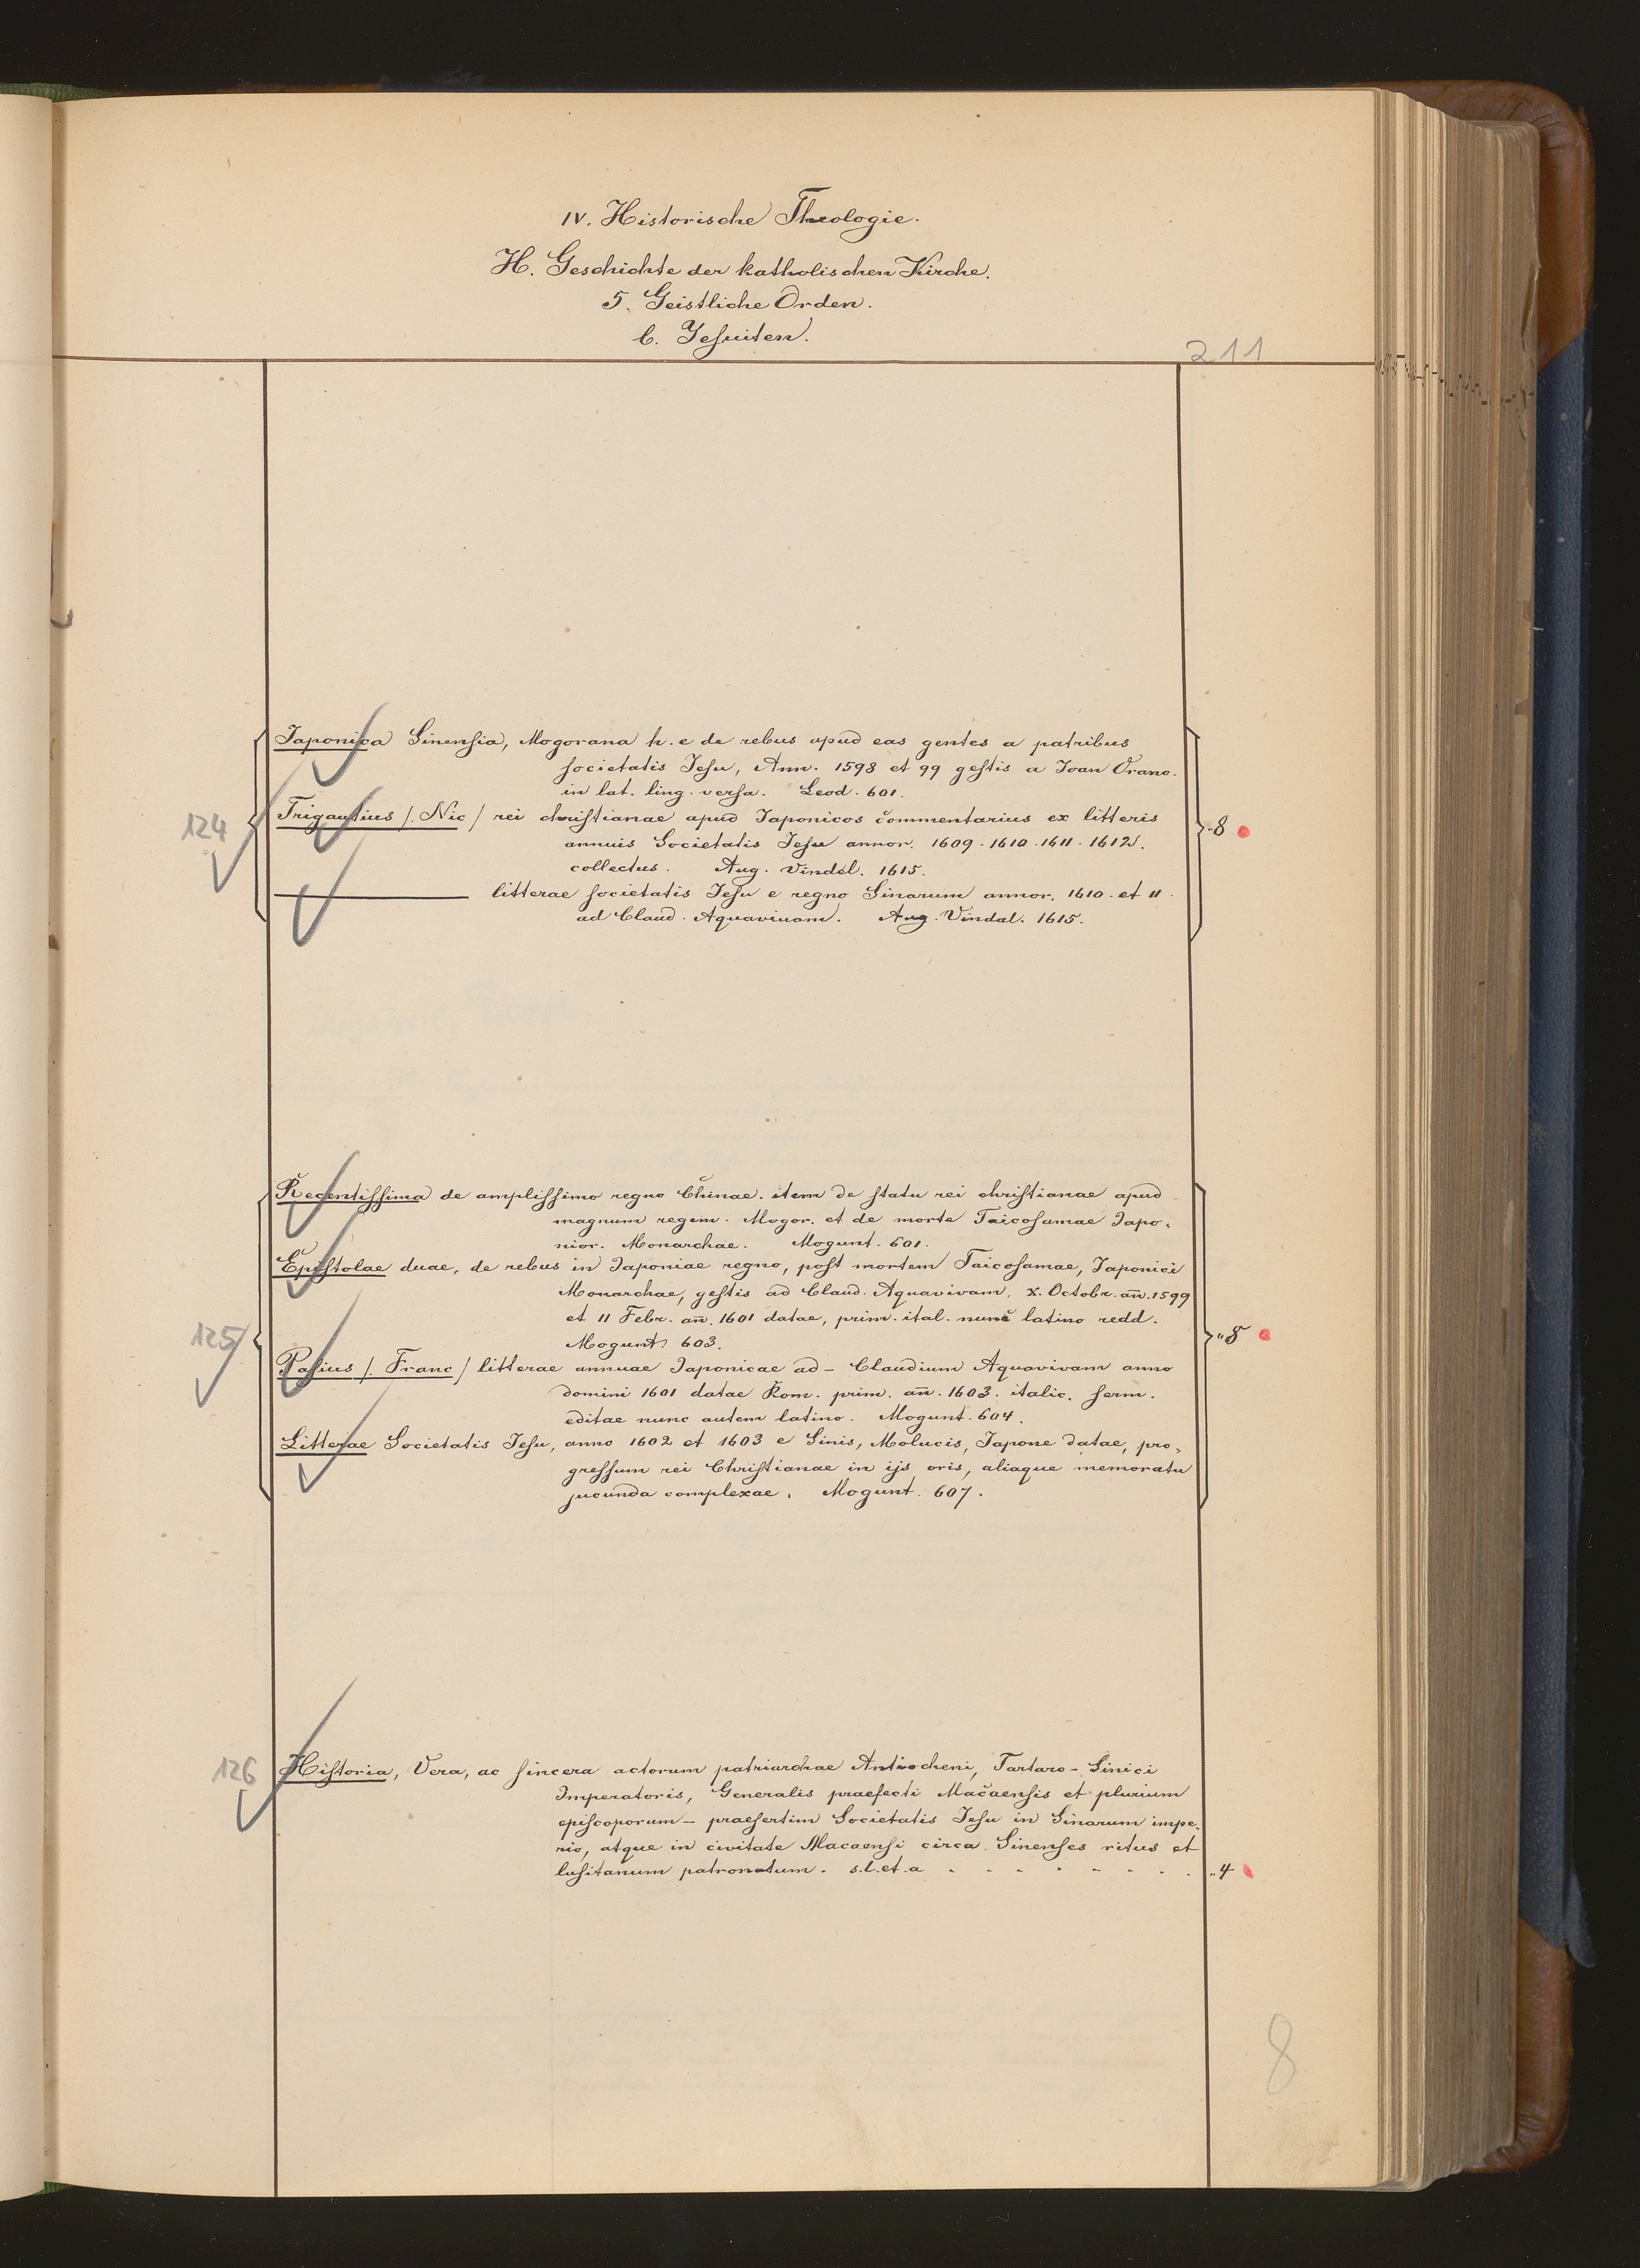 IV. Historische Theologie.
H. Geschichte der katholischen Kirche.
5. Geistliche Orden.
b. Jesuiten.
211
Japonica Sinensia, Mogorana h. e de rebus apud eas gentes a patribus
societatis Jesu, Ann. 1598 et 99 gestis a Joan Orano.
in lat. ling. versa. Leod. 601.
124 Trigautius /. Nic / rei christianae apud Japonicos commentarius ex litteris „8
annuis Societatis Jesu annor. 1609. 1610. 1611. 1612.
collectus. Aug. Vindel. 1615.
——— litterae societatis Jesu e regno Sinarum annor. 1610. et 11.
ad Claud. Aquavivam. Aug. Vindal. 1615.
Recentissima de amplissimo regno Chinae. item de statu rei christianae apud
magnum regem. Mogor. et de morte Taicosamae Japo-
nior. Monarchae. Mogunt. 601.
Epistolae duae, de rebus in Japoniae regno, post mortem Taicosamae, Japonici
Monarchae, gestis ad Claud. Aquavivam, X. Octobr. an̅. 1599
et 11 Febr. an̅. 1601 datae, prim. ital. nunc latino redd.
125 Mogunt. 603. „8
Pasius /. Franc / litterae annuae Japonicae ad - Claudium Aquavivam anno
domini 1601 datae Rom. prim. an̅. 1603. italic. serm.
editae nunc autem latino. Mogunt. 604.
Litterae Societatis Jesu, anno 1602 et 1603 e Sinis, Molucis, Japone datae, pro-
gressum rei Christianae in ijs oris, aliaque memoratu
jucunda complexae. Mogunt. 607.
126 Historia, Vera, ac sincera actorum patriarchae Antiocheni, Tartaro-Sinici
Imperatoris, Generalis praefecti Macaensis et plurium
episcoporum - praesertim Societatis Jesu in Sinarum impe-
rio, atque in civitate Macaensi circa Sinenses ritus et
lusitanum patronatum. s. l. et. a . . . . . . . . „4
8